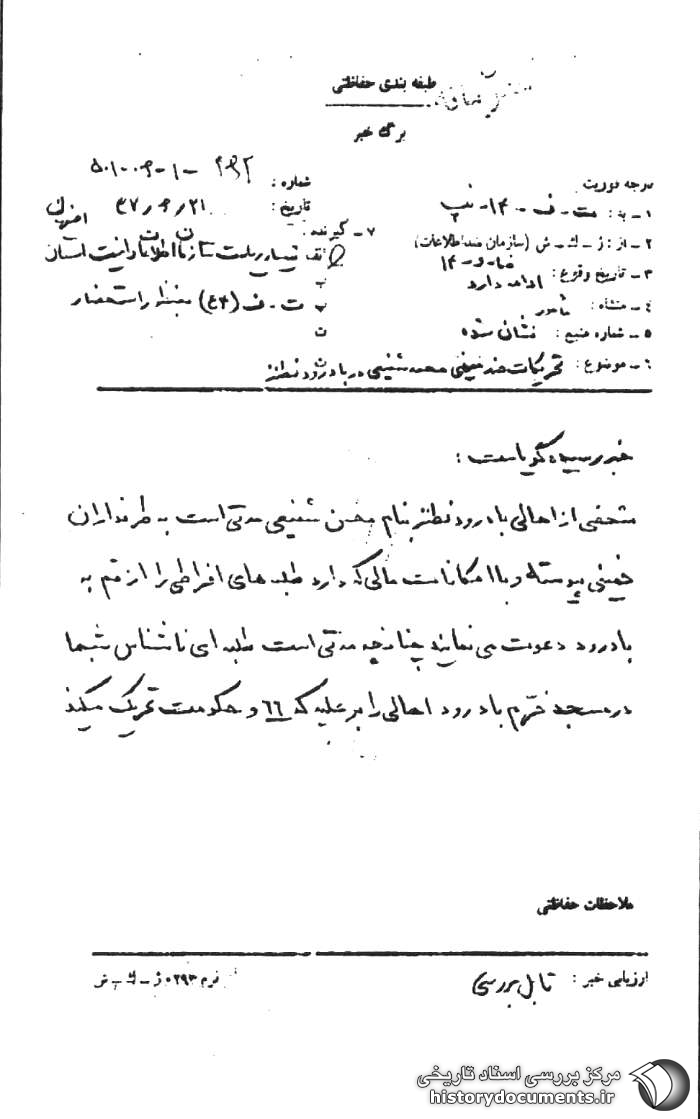 طبقه بندی حفاظتی
برگ خبر
درجه فوریت
شماره : ۲۹۲ - ۱ - ۵۰۱۰۰۶
۱ - به : ت - ف - ۱۴ - نپ
تاریخ : ۴۷/۶/۲۱
۲ - از : ژ - ك - ش (سازمان ضداطلاعات)
۷ - گیرنده :
اصفهان
۳ - تاریخ وقوع : ادامه دارد
الف تیمسار ریاست سازمان اطلاعات و امنیت استان
ب
۴ - منشاء : مأمور
پ ت - ف (۴۴) منباب استحضار
۵ - شماره منبع : نشان شده
ت
۶ - موضوع : تحریکات خمینی محسن شفیعی در بادرود نطنز
خبر رسیده گویاست :
شخصی از اهالی بادرود نطنز بنام محسن شفیعی مدتی است به طرفداران
خمینی پیوسته و با امکانات مالی که دارد طلبه های افراطی را از قم به
بادرود دعوت می نماید چنانچه مدتی است طلبه ای ناشناس شبها
در مسجد خرم بادرود اهالی را بر علیه که ۶۶ و حکومت تحریک میکند
ملاحظات حفاظتی
ارزیابی خبر : قابل بررسی
فرم ۰۲۹۳ ژ - ك - ش
مرکز بررسی اسناد تاریخی
historydocuments.ir